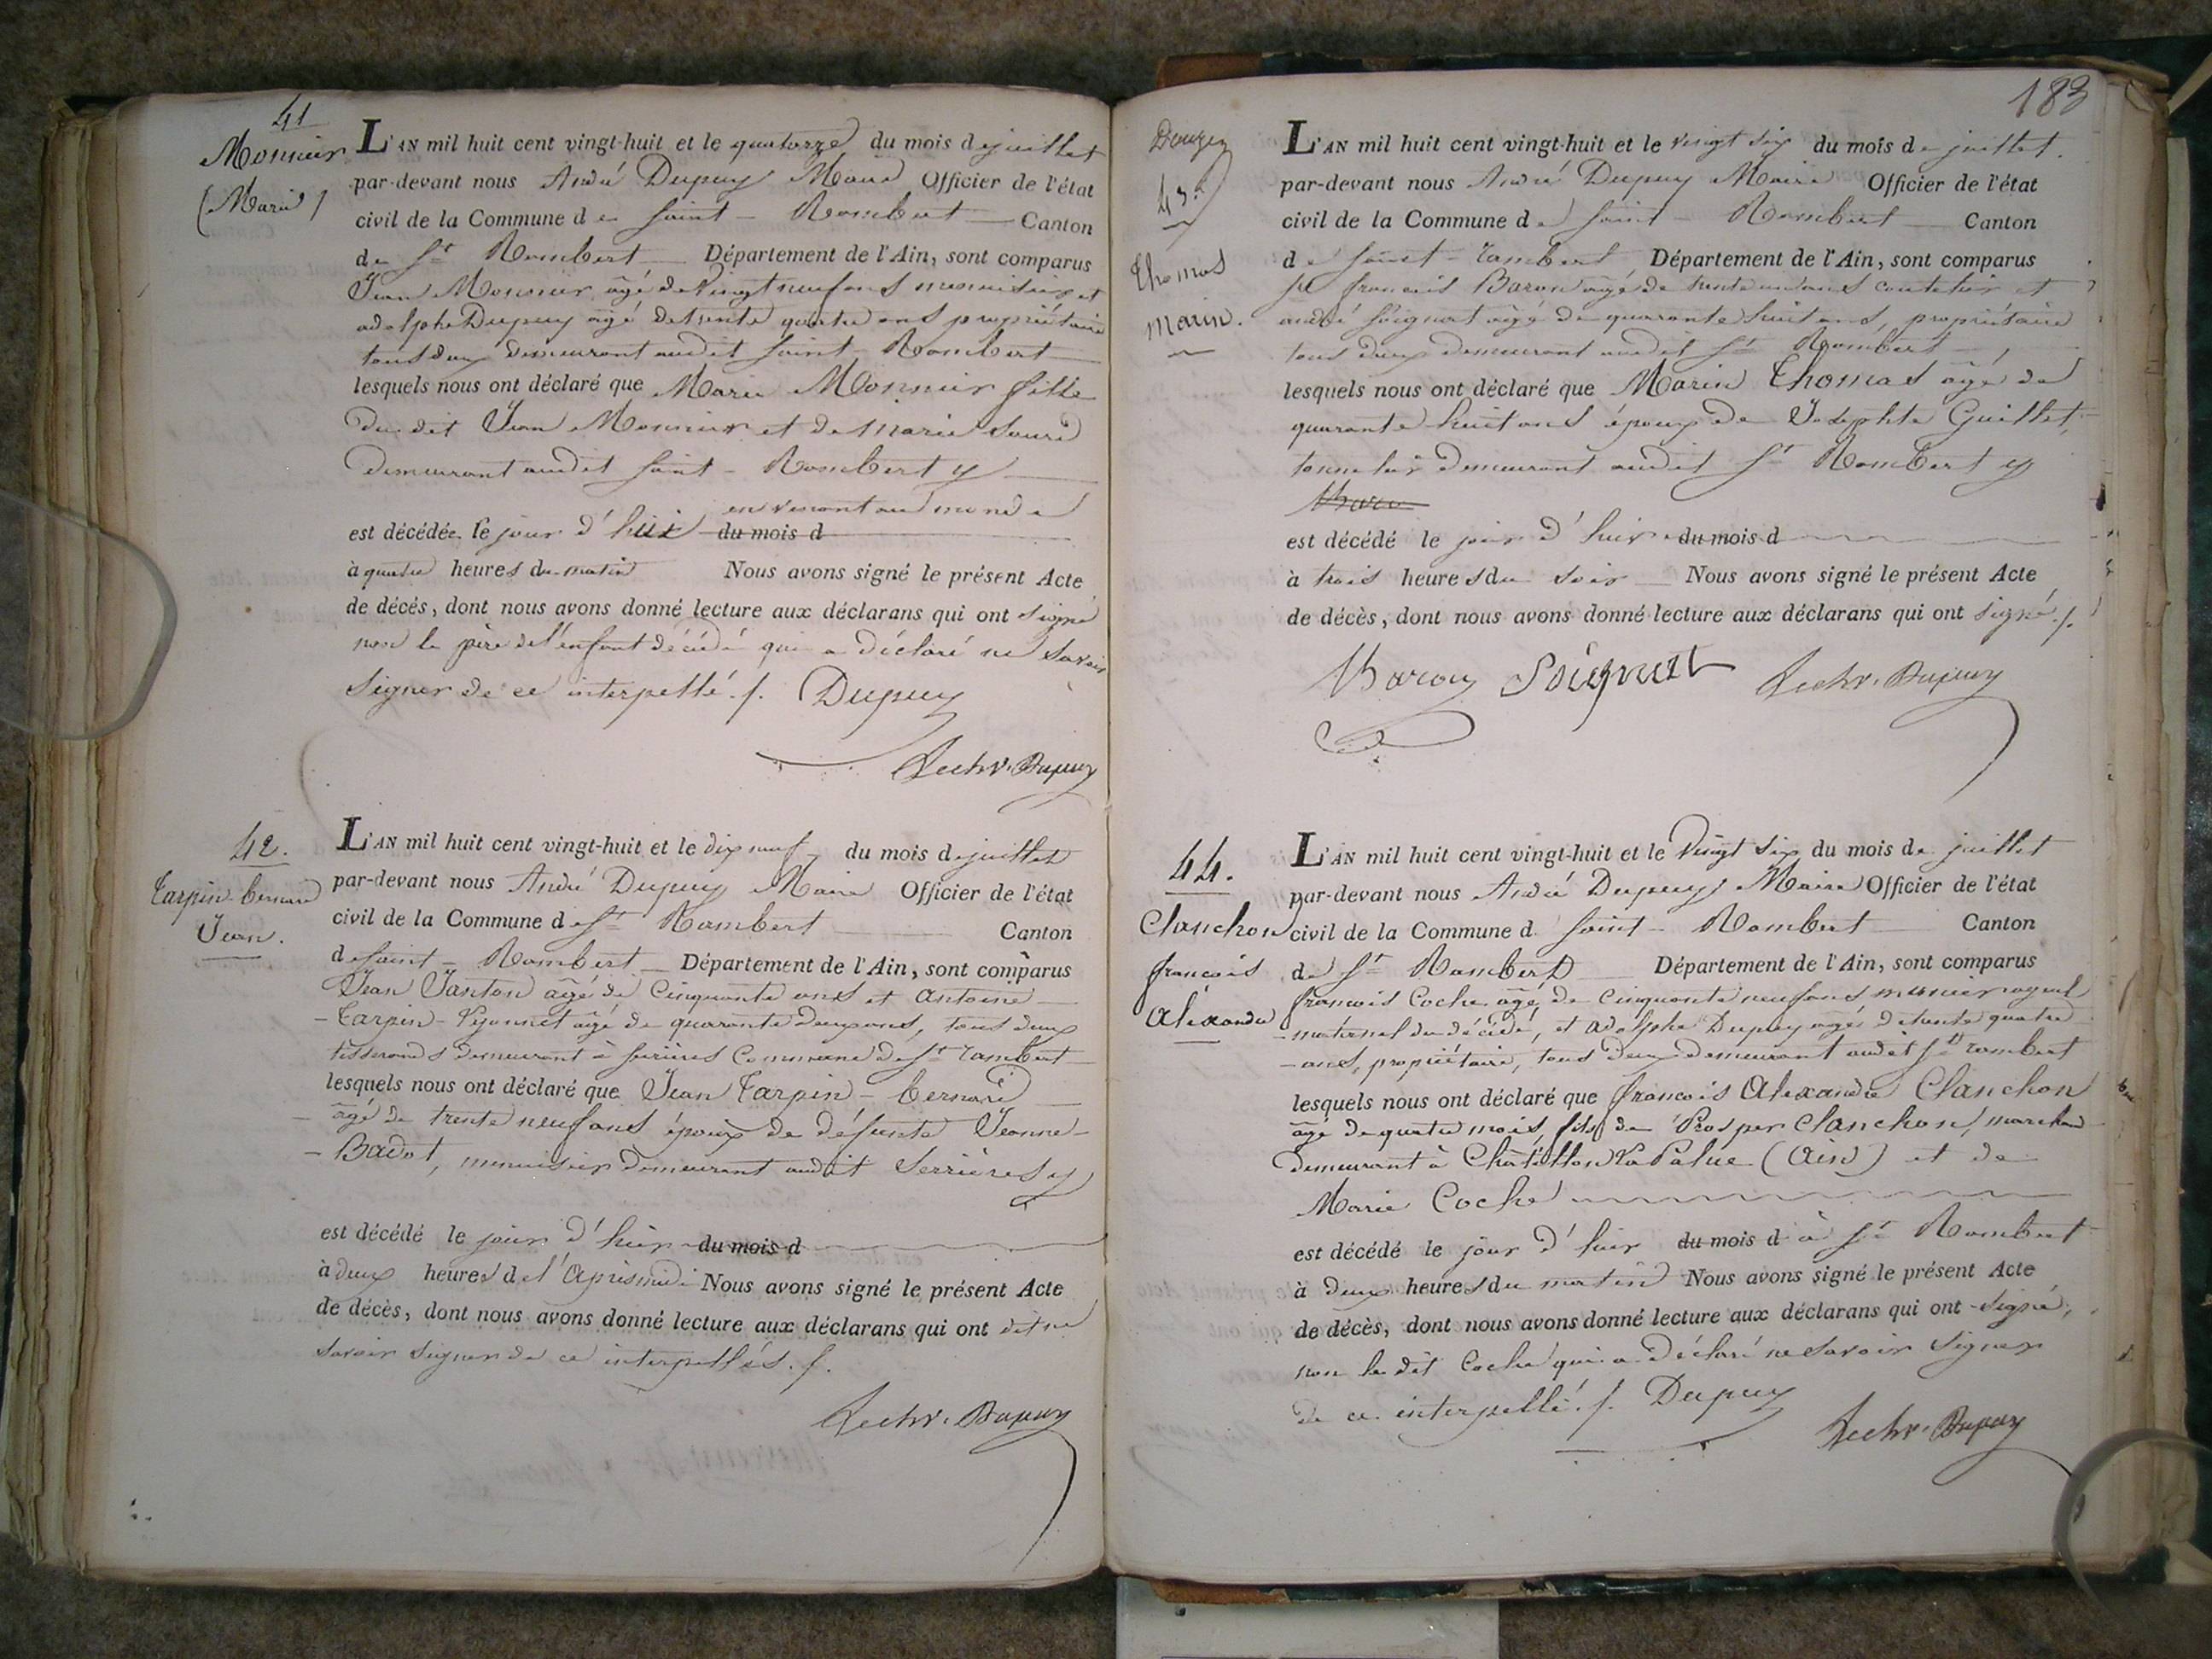 41
Monnier
(Marie)
L'AN mil huit cent vingt-huit et le quatorze du mois de juillet
par-devant nous André Dupuy Maire Officier de l'état
civil de la Commune de Saint-Rambert Canton
de St Rambert Département de l'Ain, sont comparus
Jean Monnier âgé de Vingt neuf ans menuisier et
adolphe Dupuy âgé de trente quatre ans propriétaire
tous deux demeurant audit Saint-Rambert
lesquels nous ont déclaré que Marie Monnier fille
du dit Jean Monnier et de Marie
demeurant audit Saint-Rambert y
en venant au monde
est décédée le jour d'hier du mois d
à quatre heures du matin Nous avons signé le présent Acte
de décés, dont nous avons donné lecture aux déclarans qui ont signé
non le père de l'enfant décédé qui a déclaré ne savoir
signer de ce interpellé ./. Dupuy
Dupuy
42.
Tarpin-bernard
Jean.
L'AN mil huit cent vingt-huit et le dix neuf du mois de juillet
par-devant nous André Dupuy Maire Officier de l'état
civil de la Commune de St Rambert Canton
de Saint-Rambert Département de l'Ain, sont comparus
Jean Janton âgé de Cinquante ans et Antoine
-Tarpin-Vyonnet âgé de quarante deux ans, tous deux
tisserands demeurant à Serrières Commune de St rambert
lesquels nous ont déclaré que Jean Tarpin-bernard
âgé de trente neuf ans époux de défunte Jeanne-
-Badot, menuisier demeurant audit Serrières y
est décédé le jour d'hier du mois d
à deux heures de l'Après midi Nous avons signé le présent Acte
de décès, dont nous avons donné lecture aux déclarans qui ont dit ne
savoir signer de ce interpellés ./.
Dupuy
183
43.
Thomas
Marin.
L'AN mil huit cent vingt-huit et le vingt six du mois de juillet.
par-devant nous André Dupuy Maire Officier de l'état
civil de la Commune de Saint-Rambert Canton
de Saint-rambert Département de l'Ain, sont comparus
françois Baron âgé de trente un ans coutelier et
andré Soignat âgé de quarante huit ans, propriétaire
tous deux demeurant audit St Rambert
lesquels nous ont déclaré que Marin Thomas âgé de
quarante huit ans époux de Josephte Guillet,
tonnelier demeurant audit St Rambert y
est décédé le jour d'hier du mois d
à trois heures du soir Nous avons signé le présent Acte
de décès, dont nous avons donné lecture aux déclarans qui ont signé ./.
Baron Soignat Dupuy
44.
Clanchon
françois
Alexandre
L'AN mil huit cent vingt-huit et le Vingt six du mois de juillet
par-devant nous André Dupuy Maire Officier de l'état
civil de la Commune d Saint-Rambert Canton
de St Rambert Département de l'Ain, sont comparus
françois Coche âgé de Cinquante neuf ans meunier ayeul
maternel du décédé, et adolphe Dupuy âgé de trente quatre
-ans, propriétaire, tous deux demeurant audit St rambert
lesquels nous ont déclaré que françois Alexandre Clanchon
âgé de quatre mois fils de Prosper Clanchon, marchand
demeurant à Châtillon la Palue (Ain) et de
Marie Coche
est décédé le jour d'hier du mois d à St Rambert
à deux heures du matin Nous avons signé le présent Acte
de décès, dont nous avons donné lecture aux déclarans qui ont signé,
non le dit Coche qui a déclaré ne savoir signer
de ce interpellé ./. Dupuy
Dupuy